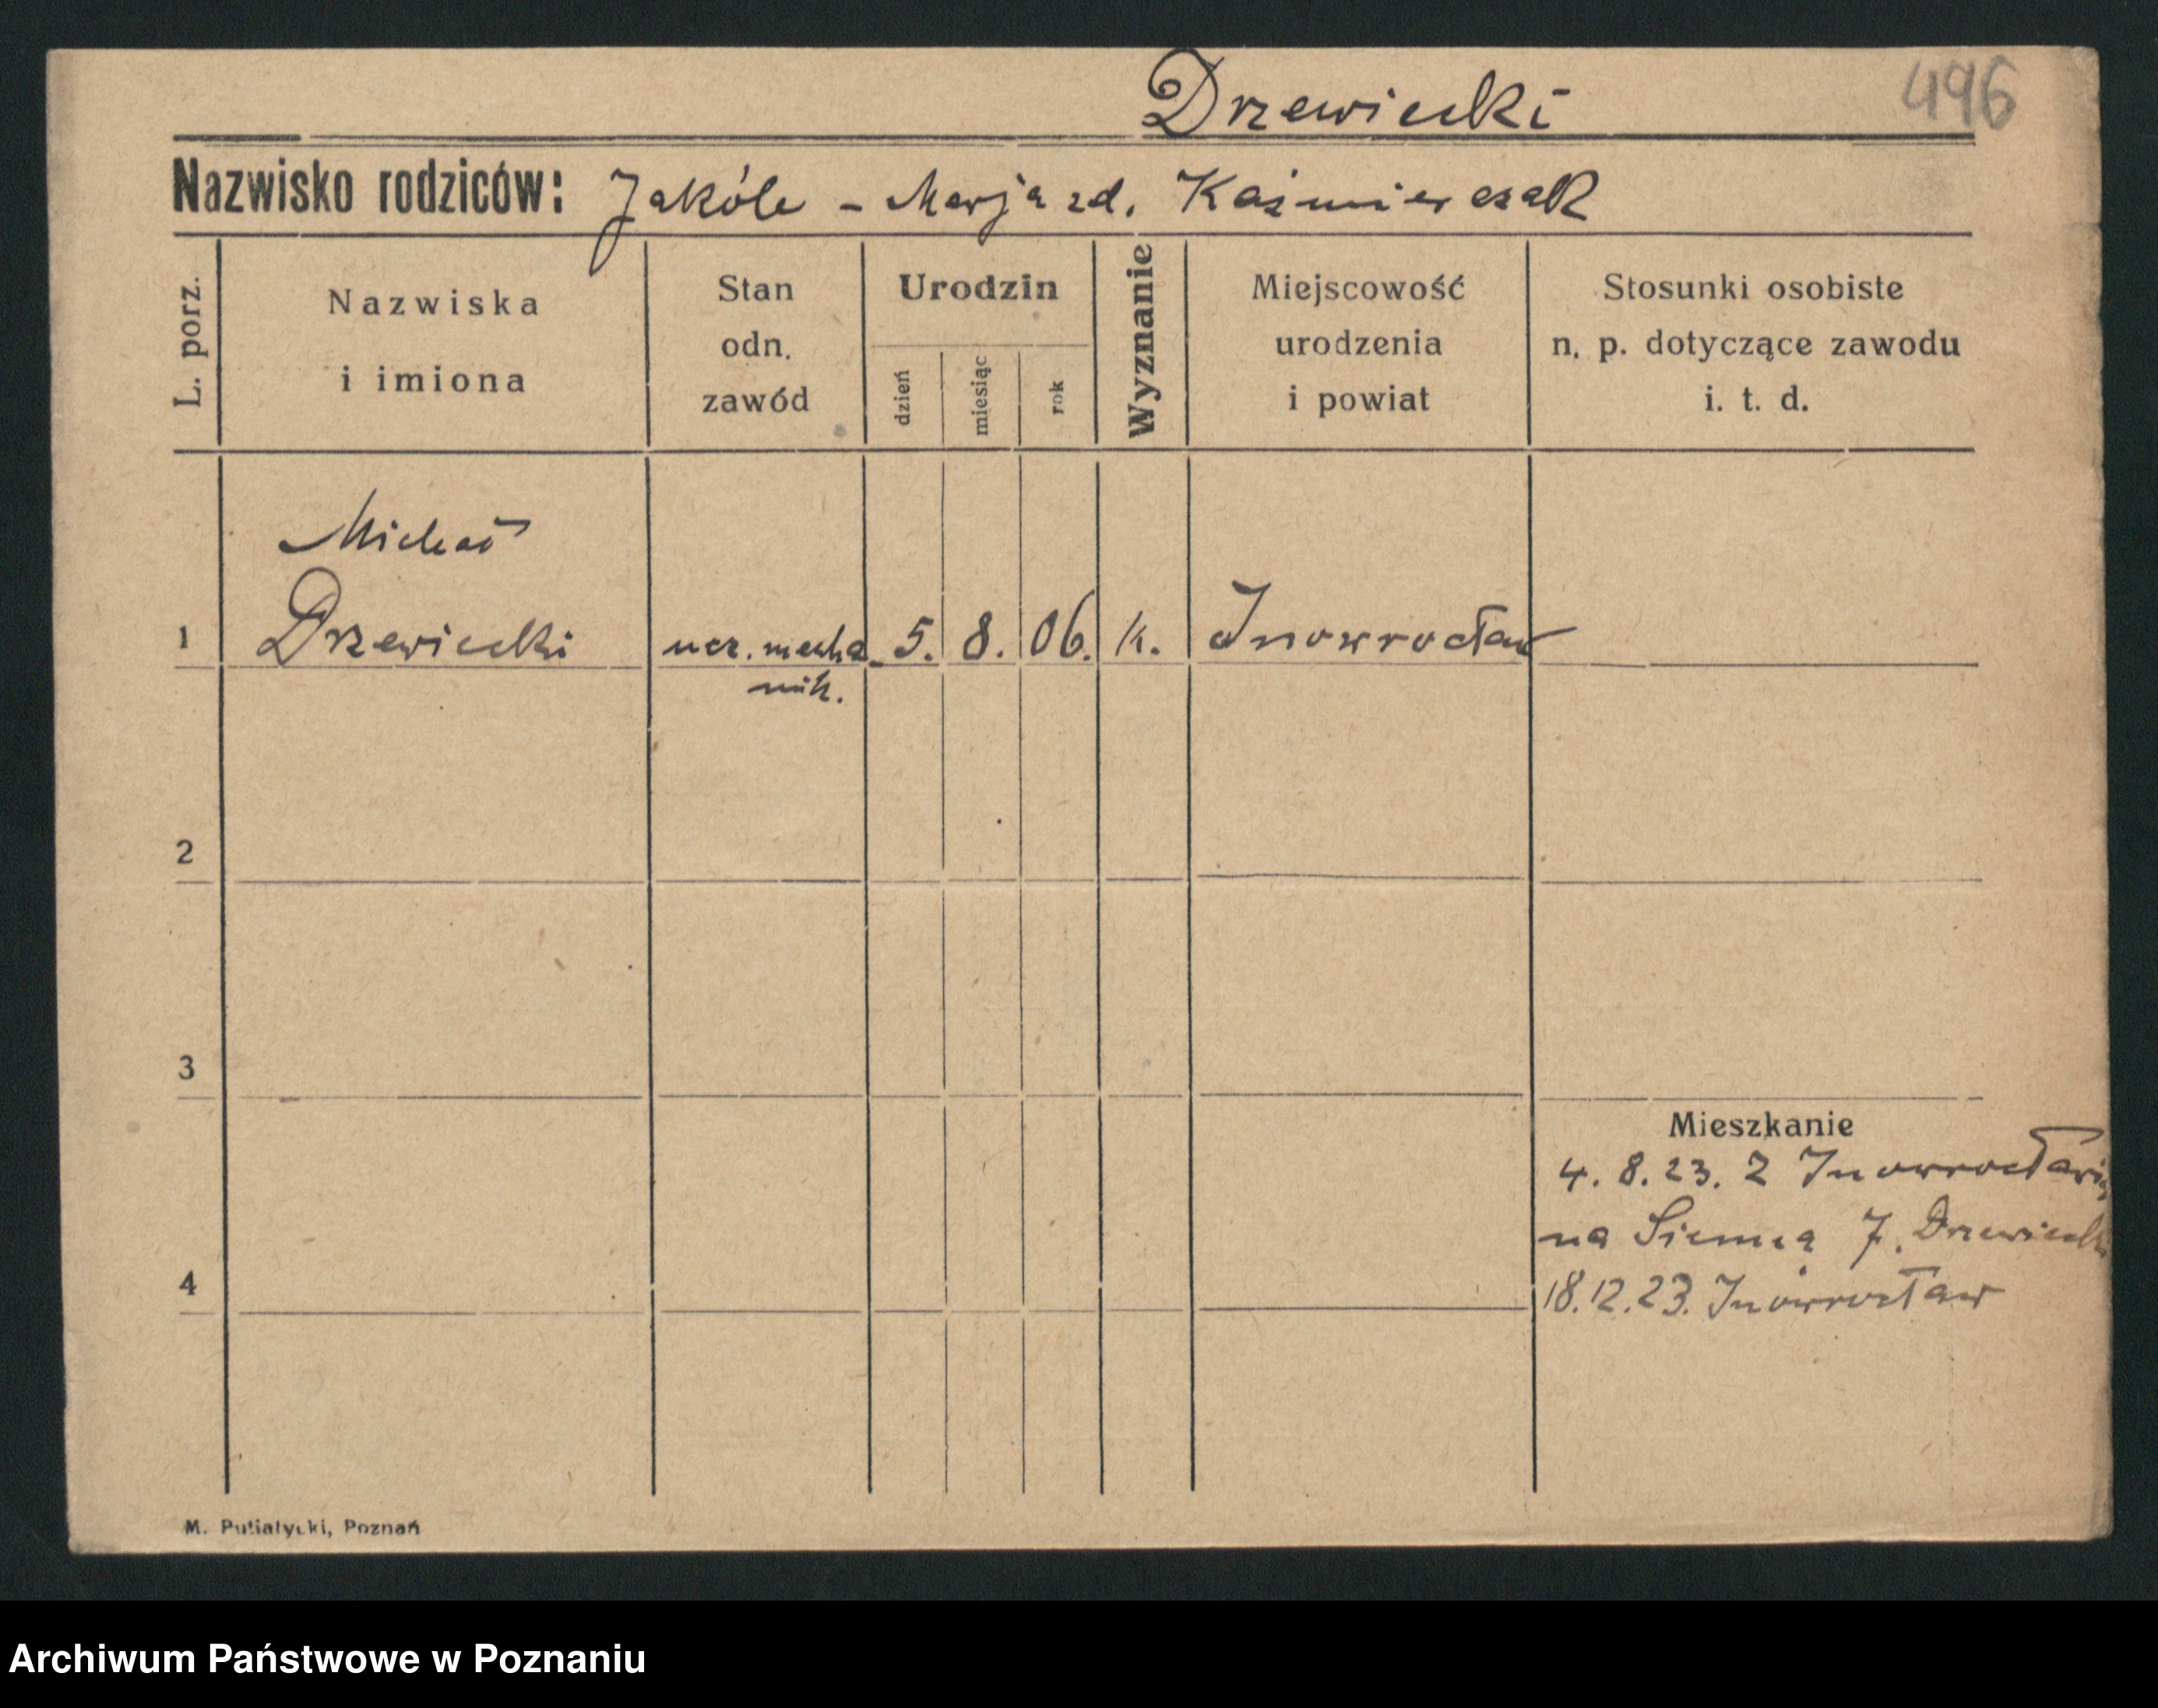 Drzewiecki
496
Nazwisko rodziców: Jakób - Marja zd. Kaźmierczak
L. porz.
Nazwiska
i imiona
Stan
odn.
zawód
Urodzin
dzień
miesiąc
rok
Wyznanie
Miejscowość
urodzenia
i powiat
Stosunki osobiste
n. p. dotyczące zawodu
i. t. d.
Michał
1 Drzewiecki ucz. mecha 5. 8. 06. k. Inowrocław
nik.
2
3
Mieszkanie
4. 8. 23. z Inowrocławia
na Sienną 7. Drzewiecki
4
18.12.23. Inowrocław
M. Putiatycki, Poznań
Archiwum Państwowe w Poznaniu